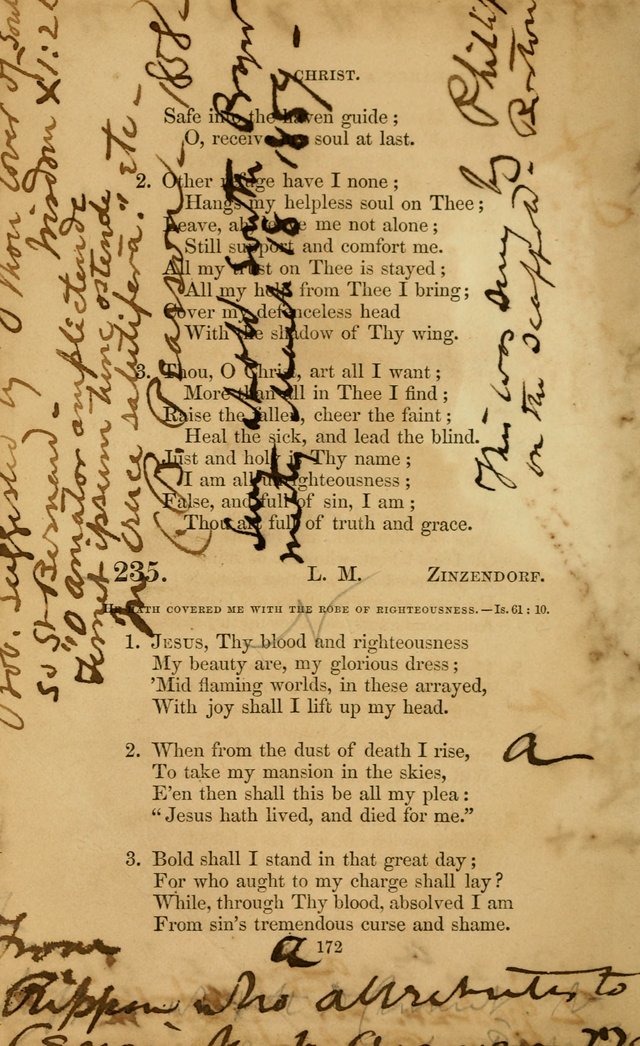 CHRIST.
Safe into the haven guide;
O, receive my soul at last.
2. Other refuge have I none;
Hangs my helpless soul on Thee;
Leave, ah, leave me not alone;
Still support and comfort me.
All my trust on Thee is stayed;
All my help from Thee I bring;
Cover my defenceless head
With the shadow of Thy wing.
3. Thou, O Christ, art all I want;
More than all in Thee I find;
Raise the fallen, cheer the faint;
Heal the sick, and lead the blind.
Just and holy is Thy name;
I am all unrighteousness;
False, and full of sin, I am;
Thou art full of truth and grace.
235. L. M. ZINZENDORF.
HE HATH COVERED ME WITH THE ROBE OF RIGHTEOUSNESS.—IS. 61: 10.
1. JESUS, Thy blood and righteousness
My beauty are, my glorious dress;
'Mid flaming worlds, in these arrayed,
With joy shall I lift up my head.
2. When from the dust of death I rise,
To take my mansion in the skies,
E'en then shall this be all my plea:
“Jesus hath lived, and died for me.”
3. Bold shall I stand in that great day;
For who aught to my charge shall lay?
While, through Thy blood, absolved I am
From sin's tremendous curse and shame.
172
a
a
From
Rippon who attributes to
Prob. suggested by "Thou lover of Souls
Wisdom XI:26
So St. Bernard-
"O amator amplectende
Temet ipsum hinc ostende
In cruce salutifera." Etc-
Pearson- 1858-
March 18 1857-
This was sung by Phillip
on the scaffold- Boston